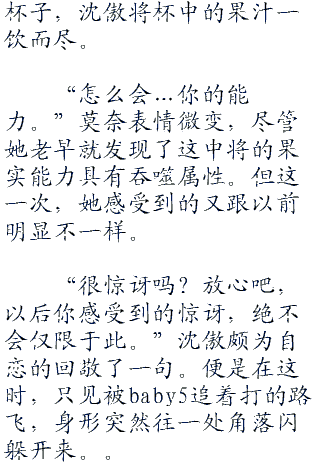 杯子，沈傲将杯中的果汁一
饮而尽。
“怎么会…你的能
力。”莫奈表情微变，尽管
她老早就发现了这中将的果
实能力具有吞噬属性。但这
一次，她感受到的又跟以前
明显不一样。
“很惊讶吗？放心吧，
以后你感受到的惊讶，绝不
会仅限于此。”沈傲颇为自
恋的回敬了一句。便是在这
时，只见被baby5追着打的路
飞，身形突然往一处角落闪
躲开来。。